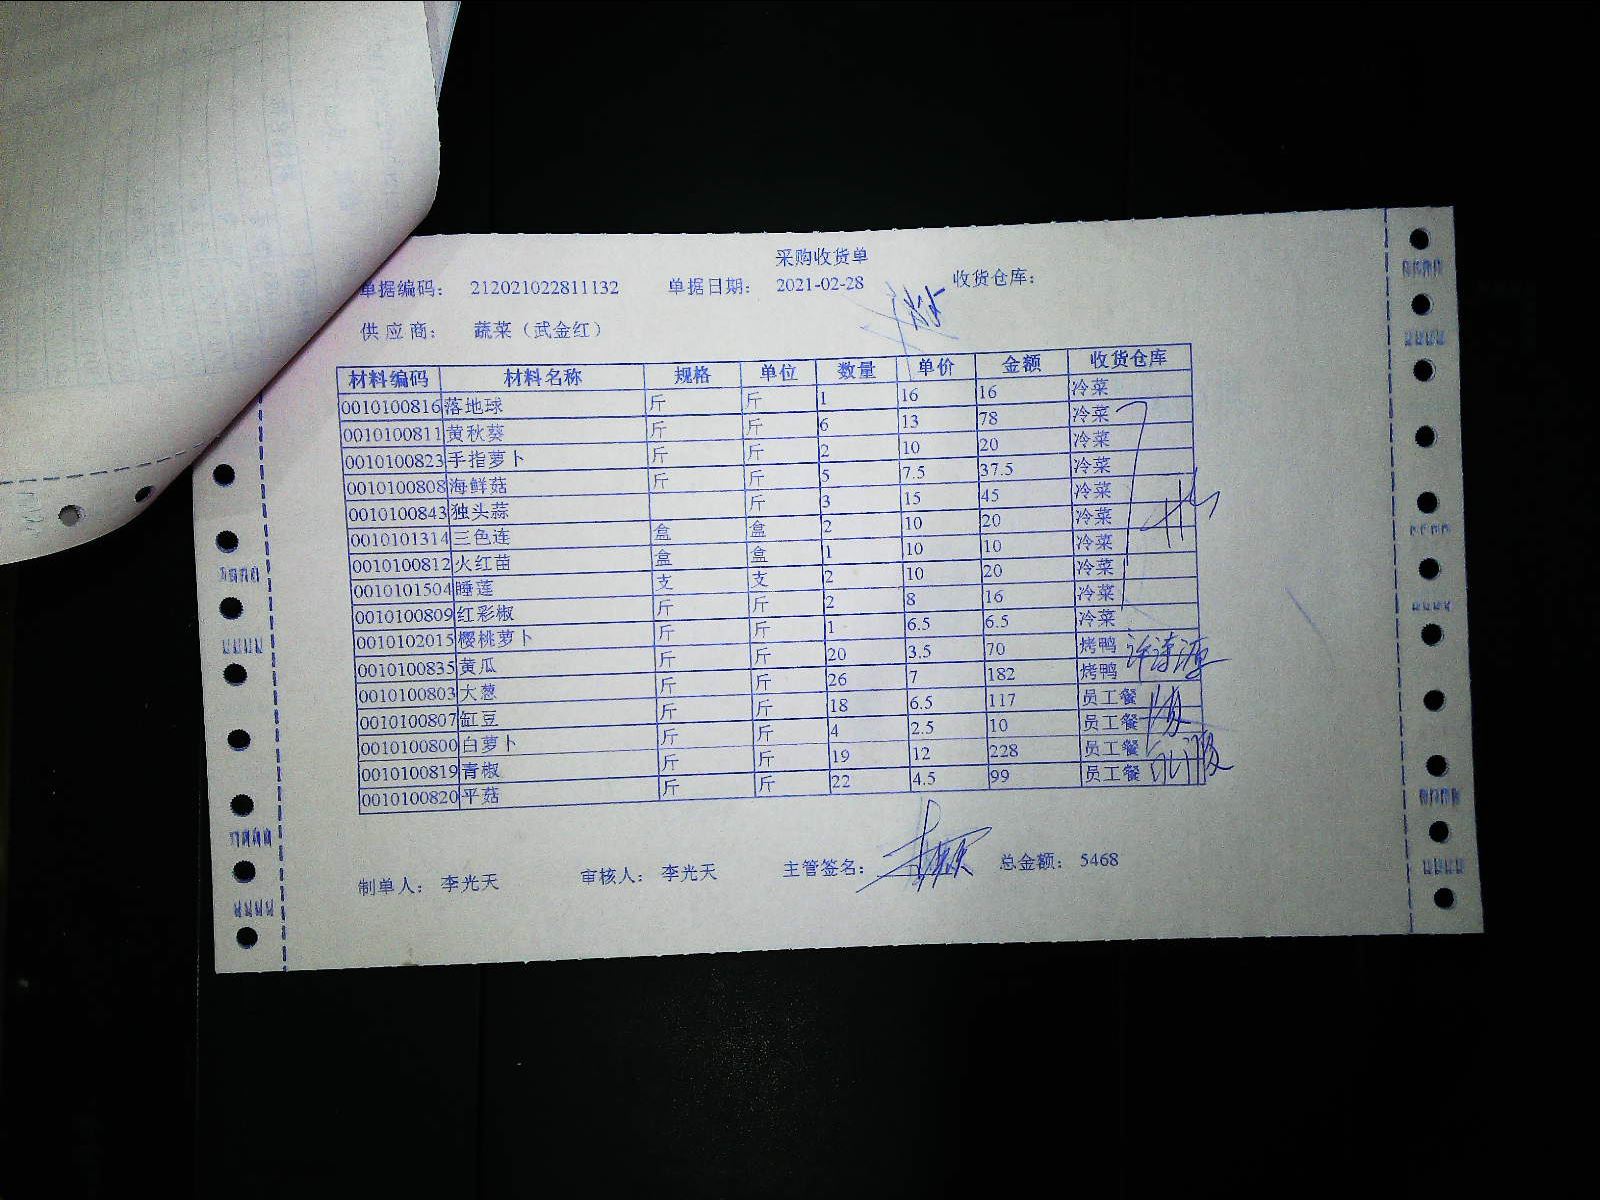 采购收货单
单据编码： 212021022811132 单据日期： 2021-02-28 收货仓库：
供应商： 蔬菜（武金红）
材料编码 材料名称 规格 单位 数量 单价 金额 收货仓库
0010100816 落地球 斤 斤 1 16 16 冷菜
0010100811 黄秋葵 斤 斤 6 13 78 冷菜
0010100823 手指萝卜 斤 斤 2 10 20 冷菜
0010100808 海鲜菇 斤 斤 5 7.5 37.5 冷菜
0010100843 独头蒜 斤 3 15 45 冷菜
0010101314 三色连 盒 盒 2 10 20 冷菜
0010100812 火红苗 盒 盒 1 10 10 冷菜
0010101504 睡莲 支 支 2 10 20 冷菜
0010100809 红彩椒 斤 斤 2 8 16 冷菜
0010102015 樱桃萝卜 斤 斤 1 6.5 6.5 冷菜
0010100835 黄瓜 斤 斤 20 3.5 70 烤鸭
0010100803 大葱 斤 斤 26 7 182 烤鸭
0010100807 缸豆 斤 斤 18 6.5 117 员工餐
0010100800 白萝卜 斤 斤 4 2.5 10 员工餐
0010100819 青椒 斤 斤 19 12 228 员工餐
0010100820 平菇 斤 斤 22 4.5 99 员工餐
制单人： 李光天 审核人： 李光天 主管签名： 总金额： 5468